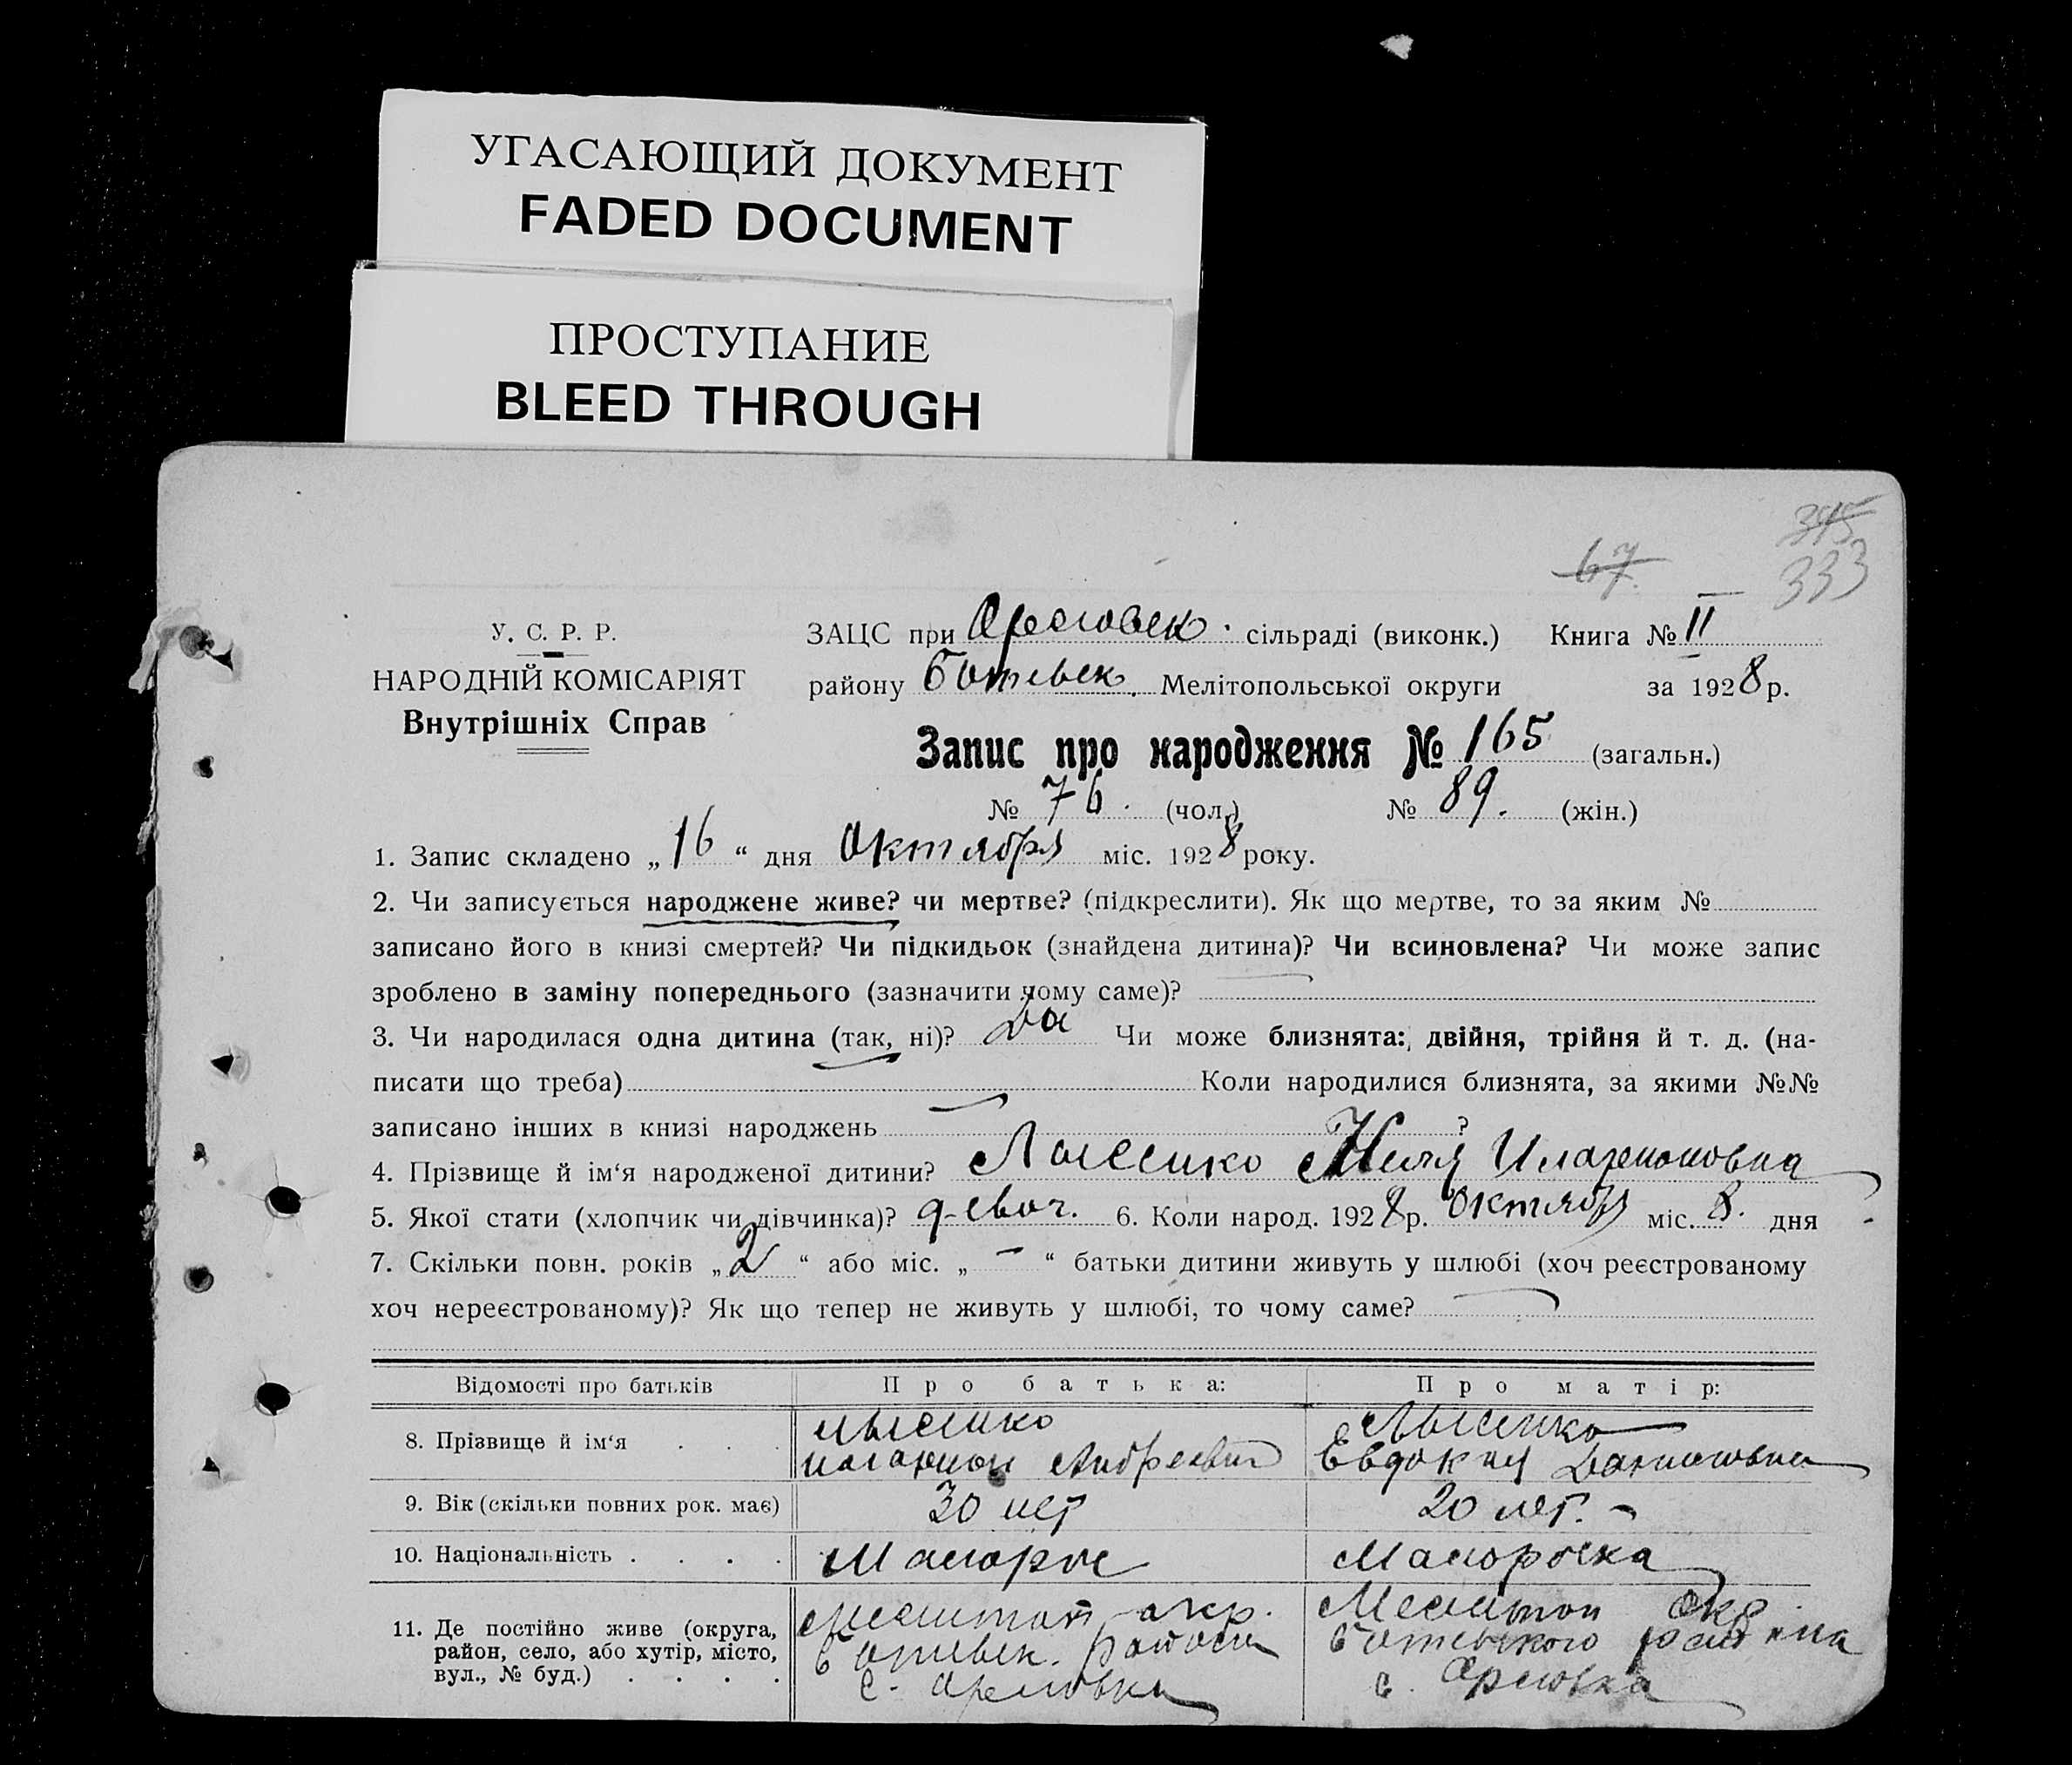 УГАСАЮЩИЙ ДОКУМЕНТ
FADED DOCUMENT
ПРОСТУПАНИЕ
BLEED THROUGH
345
67. 333
У. С. Р. Р.
НАРОДНІЙ КОМІСАРІЯТ
Внутрішніх Справ
ЗАЦС при Орловск. сільраді (виконк.) Книга № II
району Ботьевск. Мелітопольської округи за 1928 р.
Запис про народження № 165 (загальн.)
№ 76. (чол.) № 89. (жін.)
1. Запис складено „16“ дня Октября міс. 1928 року.
2. Чи записується народжене живе? чи мертве? (підкреслити). Як що мертве, то за яким №
записано його в книзі смертей? Чи підкидьок (знайдена дитина)? Чи всиновлена? Чи може запис
зроблено в заміну попереднього (зазначити чому саме)?
3. Чи народилася одна дитина (так, ні)? Да Чи може близнята: двійня, трійня й т. д. (на-
писати що треба) Коли народилися близнята, за якими №№
записано інших в книзі народжень ?
4. Прізвище й ім‘я народженої дитини? Лысенко Иларионовна
5. Якої стати (хлопчик чи дівчинка)? девоч. 6. Коли народ. 1928 р. Октября міс. 8. дня
7. Скільки повн. років „2“ або міс. „—“ батьки дитини живуть у шлюбі (хоч реєстрованому
хоч нереєстрованому)? Як що тепер не живуть у шлюбі, то чому саме?
Відомості про батьків Про батька: Про матір:
8. Прізвище й ім‘я . . . Лысенко Лысенко
Иларион Андреевич Евдокия
9. Вік (скільки повних рок. має) 30 лет 20 лет. —
10. Національність . . . . Малорос Малороска
11. Де постійно живе (округа, район, село, або хутір, місто, вул., № буд.) . . . .
Мелитоп окр. Мелитоп Окр.
Ботьевск. района Ботьевского района
с. Орловки с. Орловка